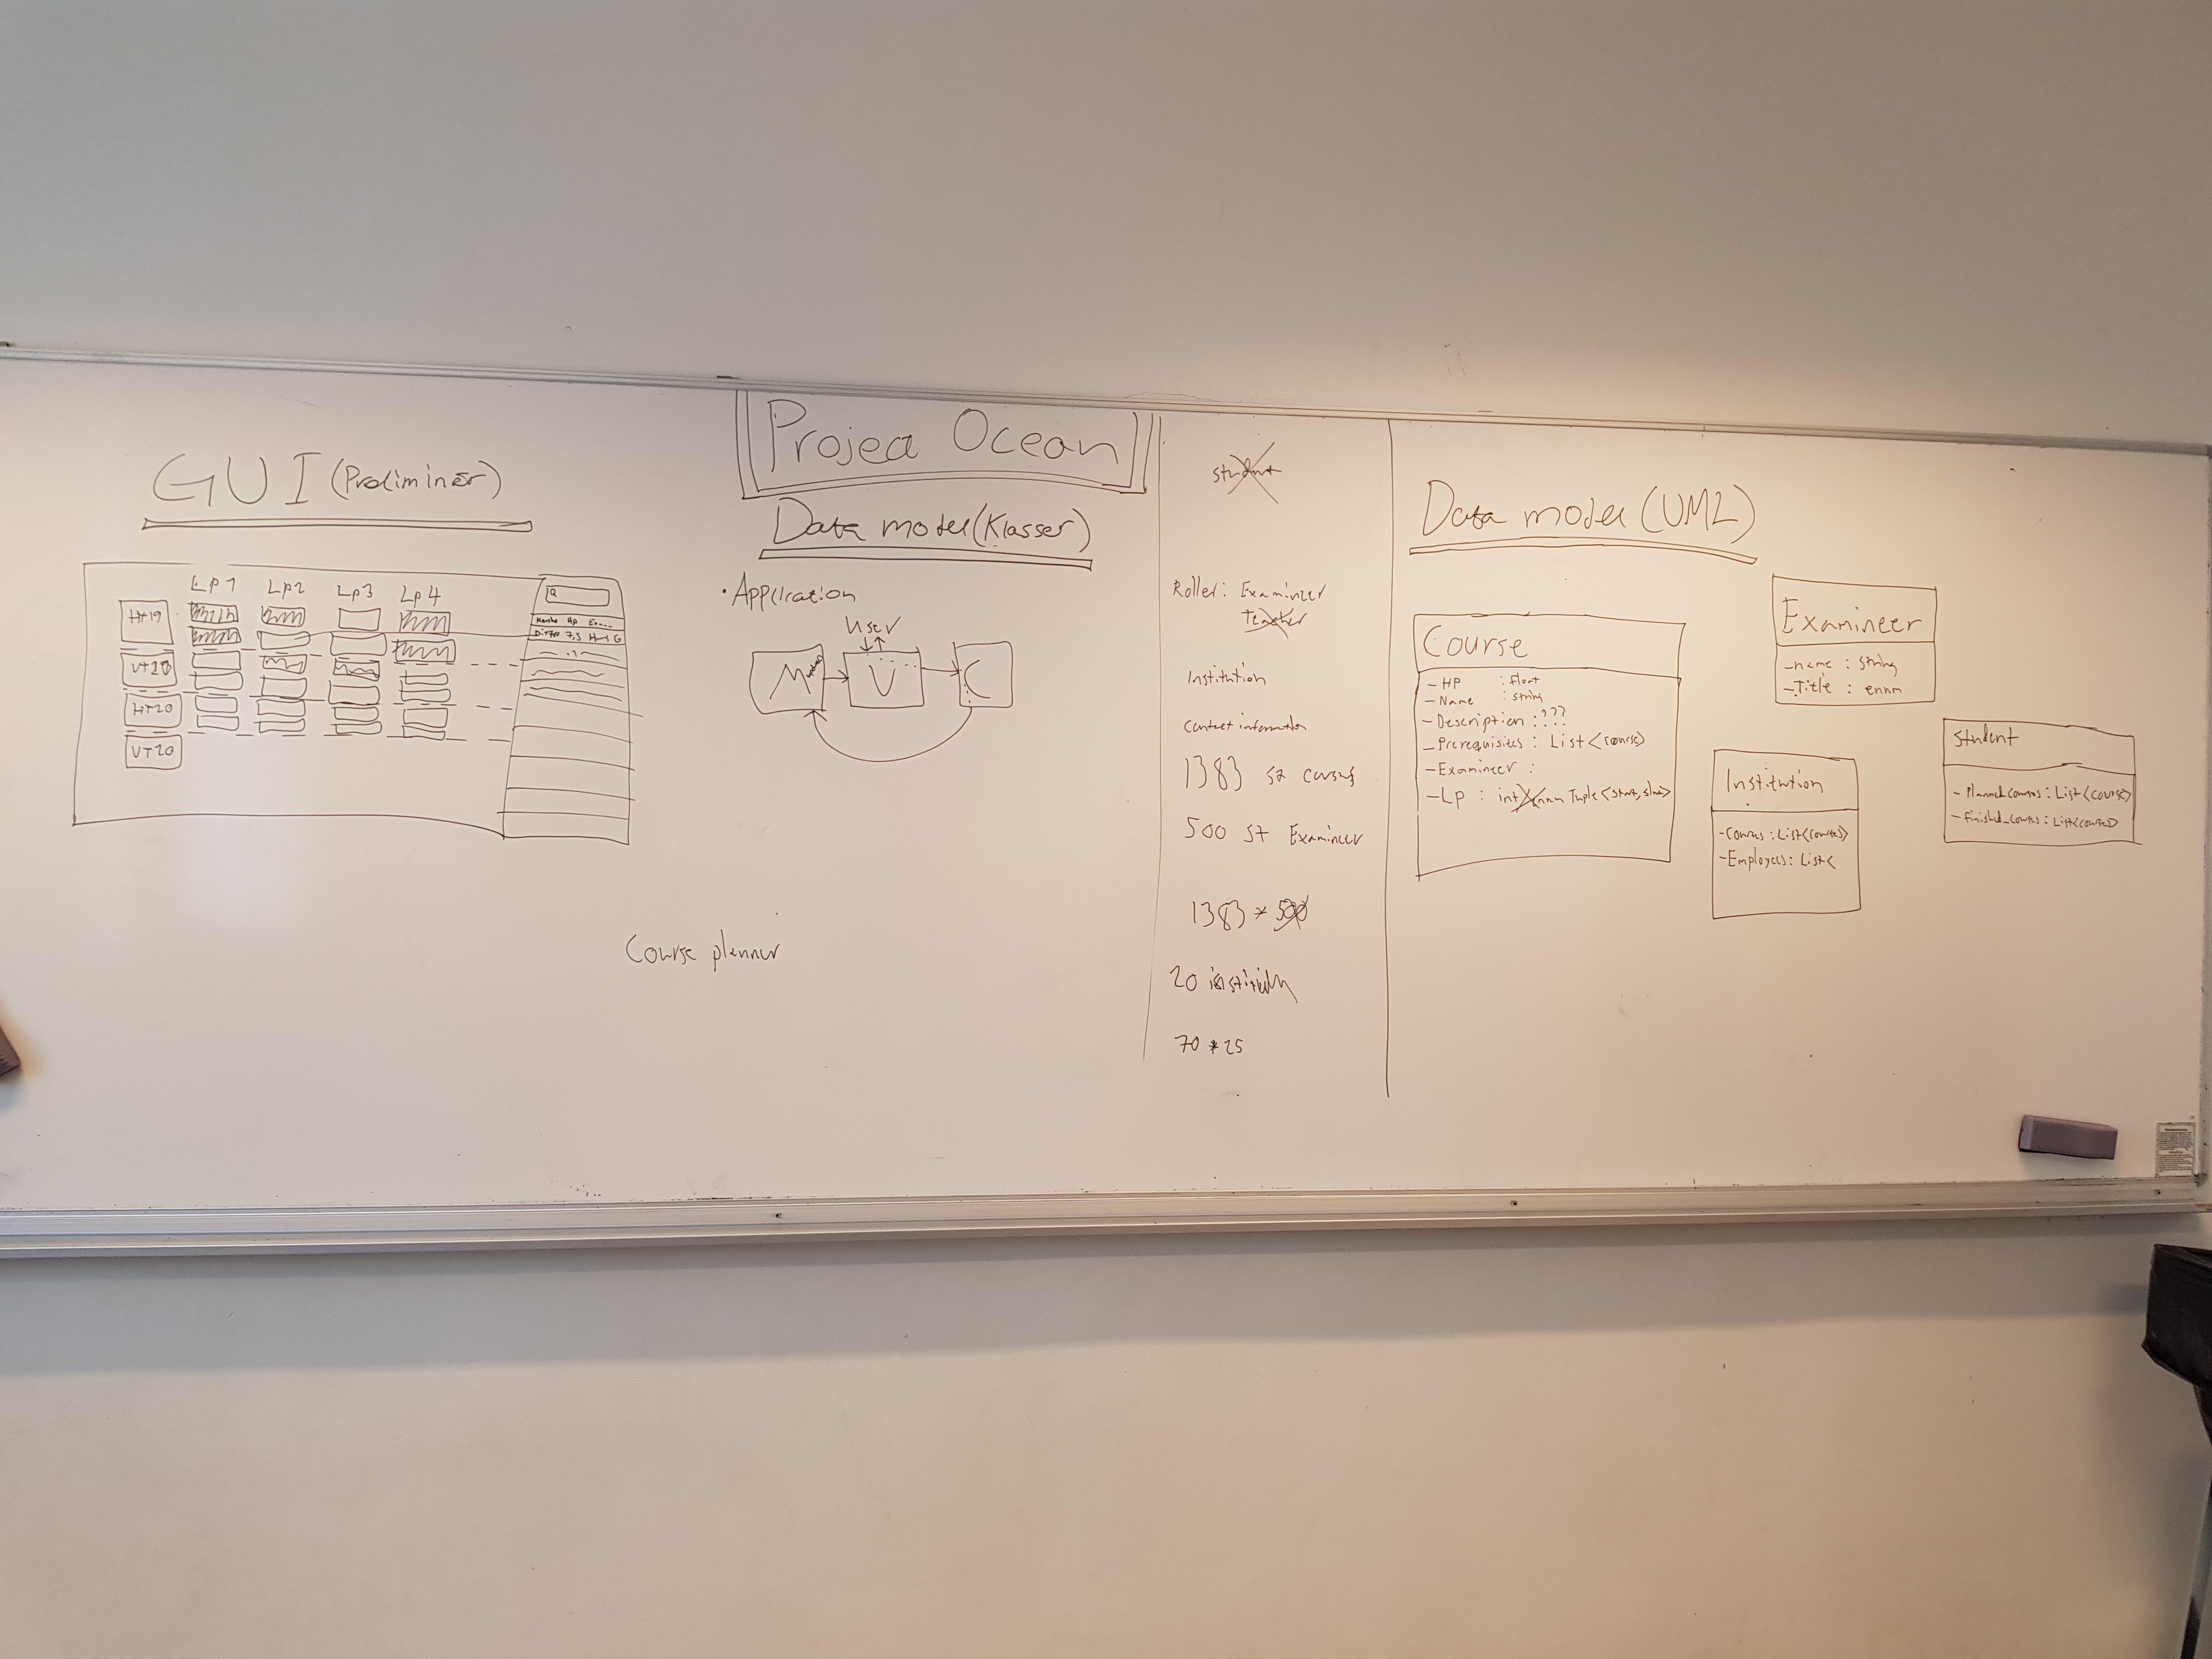 Project Ocean
GUI (Preliminär)
Lp1 Lp2 Lp3 Lp4
HT19
VT20
HT20
VT20
Data model (Klasser)
• Application
User
M
V
C
Course planner
Student
Roller: Examineer
Teacher
Institution
Contact information
1383 st courses
500 st Examineer
1383 * 500
20
70 * 25
Data model (UML)
Course
- HP : float
- Name : string
- Description : ???
- Prerequisites : List<course>
- Examineer :
- Lp : int enum Tuple<start, slut>
Examineer
- name : string
- Title : enum
Institution
- Courses : List<courses>
- Employees : List<
Student
- Planned_courses : List<course>
- Finished_courses : List<courses>